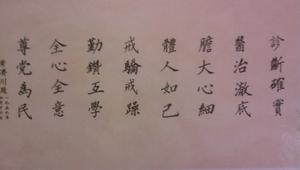 診斷確實
醫治澈底
膽大心細
體人如己
戒驕戒躁
勤鑽互學
全心全意
尊党為民